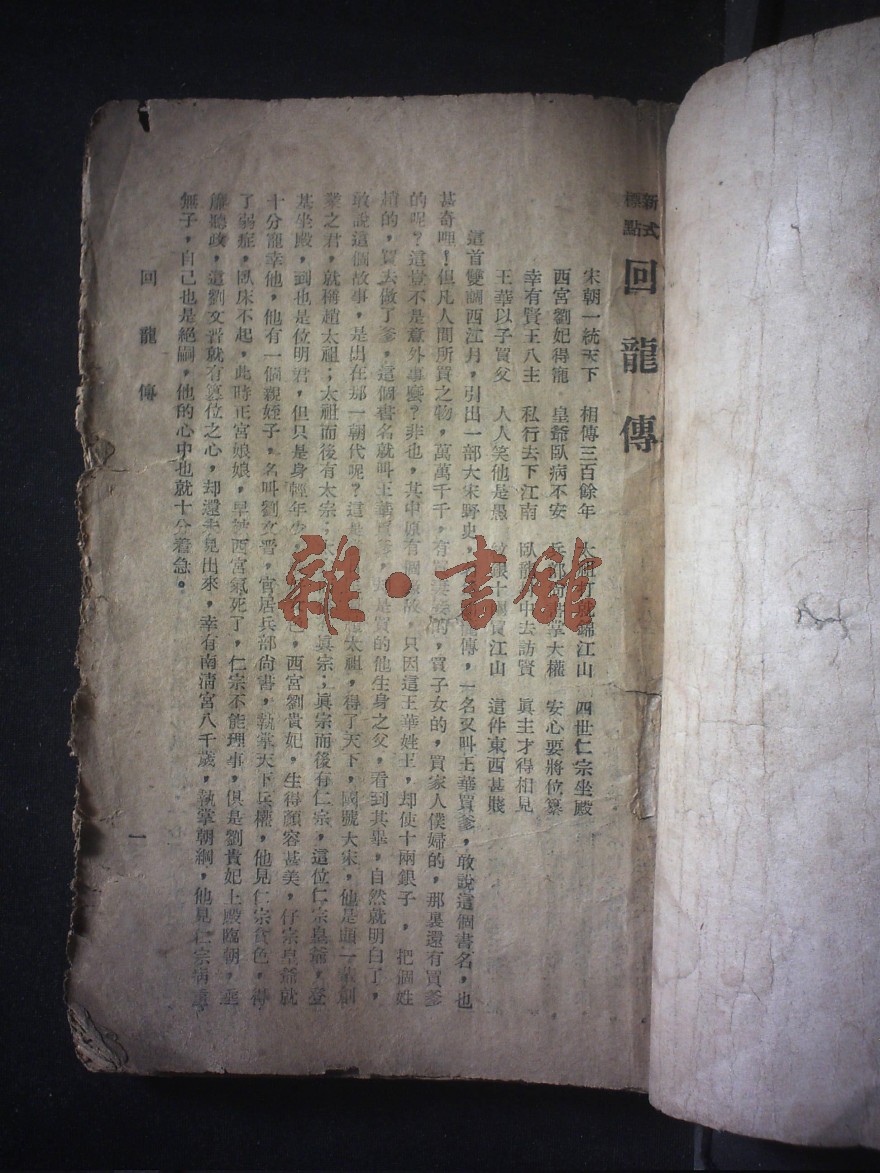 新式標點
回龍傳
宋朝一統天下 相傳三百餘年 錦江山 四世仁宗坐殿
西宮劉妃得寵 皇爺臥病不安 兵部 掌大權 安心要將位篡
幸有賢王八主 私行去下江南 臥龍 中去訪賢 眞主才得相見
王華以子買父 人人笑他是愚 紋銀十兩買江山 這件東西甚賤
這首雙調西江月,引出一部大宋野史, 龍傳,一名又叫王華買爹,敢說這個書名,也
甚奇哩!但凡人間所買之物,萬萬千千,有 的,買子女的,買家人僕婦的,那裏還有買爹
的呢?這豈不是意外事麼?非也,其中原有個 故,只因這王華姓王,却使十兩銀子,把個姓
趙的,買去做了爹,這個書名就叫王華買爹, 是買的他生身之父,看到其畢,自然就明白了,
敢說這個故事,是出在那一朝代呢?這是 太祖,得了天下,國號大宋,他是頭一輩創
業之君,就稱趙太祖;太祖而後有太宗; 眞宗;眞宗而後有仁宗,這位仁宗皇爺,登
基坐殿,到也是位明君,但只是身輕年少, 色,西宮劉貴妃,生得顏容甚美,仔宗皇爺就
十分寵幸他,他有一個親姪子,名叫劉文晋,官居兵部尚書,執掌天下兵權,他見仁宗貪色,得
了弱症,臥床不起,此時正宮娘娘,早被西宮氣死了,仁宗不能理事,俱是劉貴妃上殿臨朝,垂
簾聽政,這劉文晋就有篡位之心,却還未見出來,幸有南淸宮八千歲,執掌朝綱,他見仁宗病重,
無子,自己也是絕嗣,他的心中也就十分着急。
回龍傳
一
雜·書館